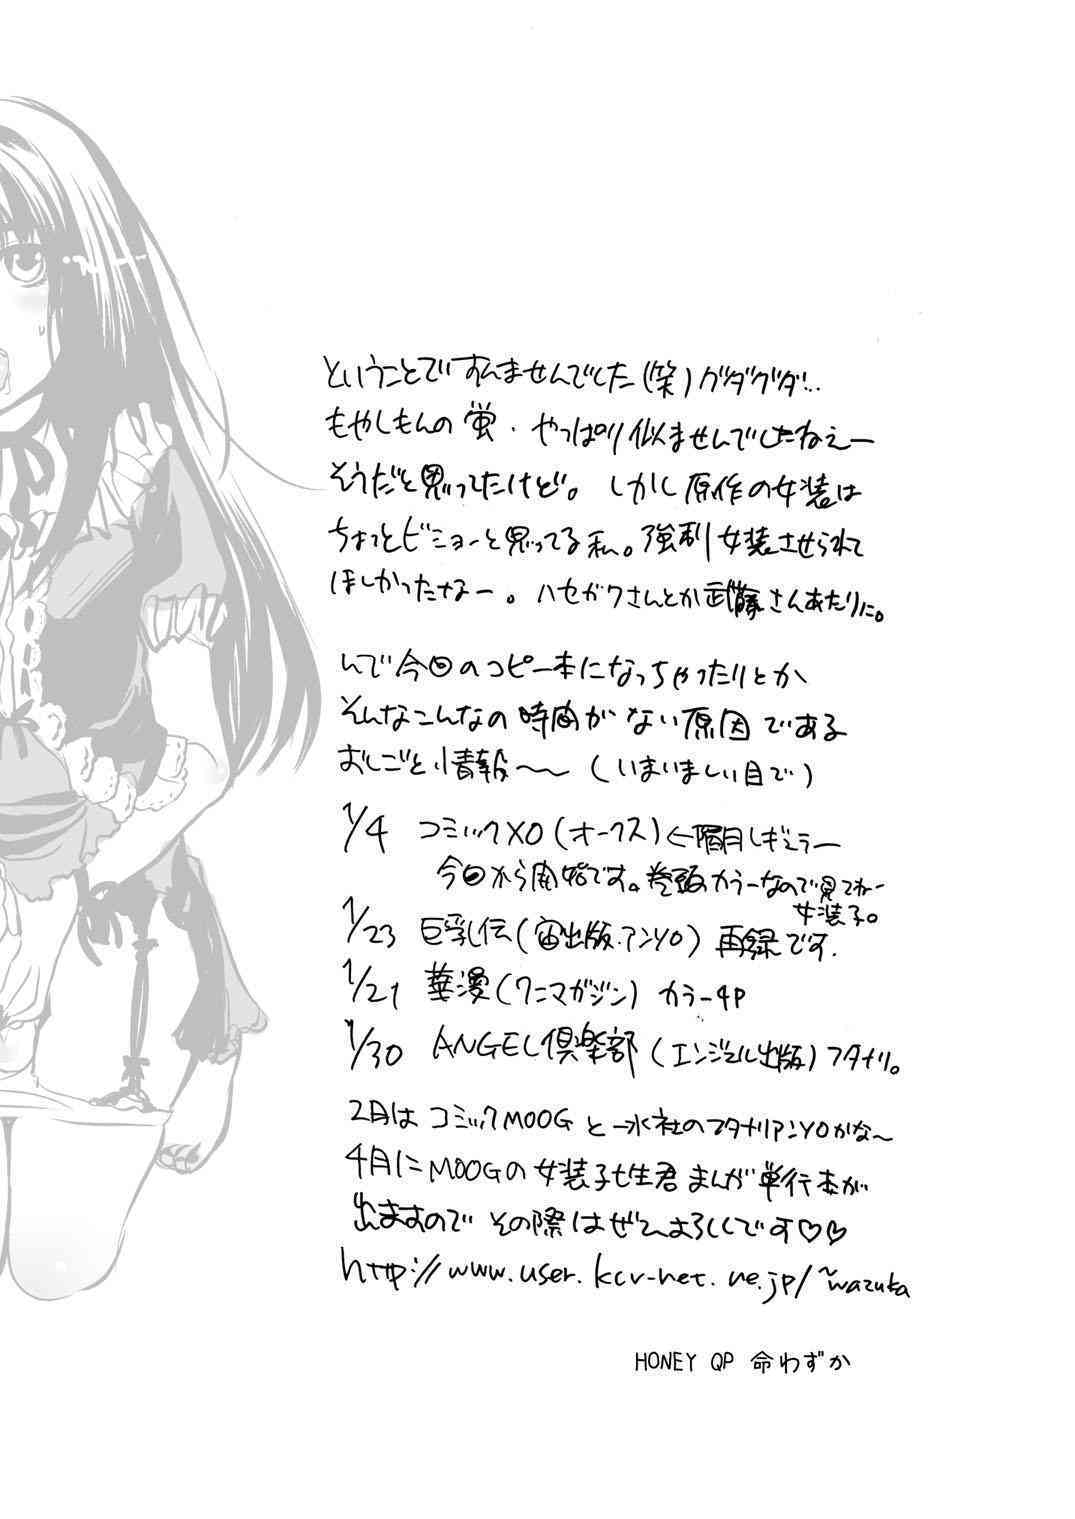 ということですんませんでした(笑)グダグダ…
もやしもんの蛍・やっぱり似ませんでしたねえー
そうだと思ってたけど。しかし原作の女装は
ちょっとビミョーと思ってる私。強制女装させられて
ほしかったなー。ハセガワさんとか武藤さんあたりに。
んで今回のコピー本になっちゃったりとか
そんなこんなの時間がない原因である
おしごと情報〜〜(いまいましい目で)
1/4 コミックXO(オークス)←隔月レギュラー
今回から開始です。巻頭カラーなので見てねー
女装子。
1/23 巨乳伝(宙出版・アンソロ)再録です.
1/21 華漫(ワニマガジン)カラー4P
1/30 ANGEL倶楽部(エンジェル出版)フタナリ。
2月はコミックMOOGと一水社のフタナリアンソロかな〜
4月にMOOGの女装子七生君まんが単行本が
出ますのでその際はぜひよろしくです♡♡
http://www.user.kcv-net.ne.jp/~wazuka
HONEY QP 命わずか